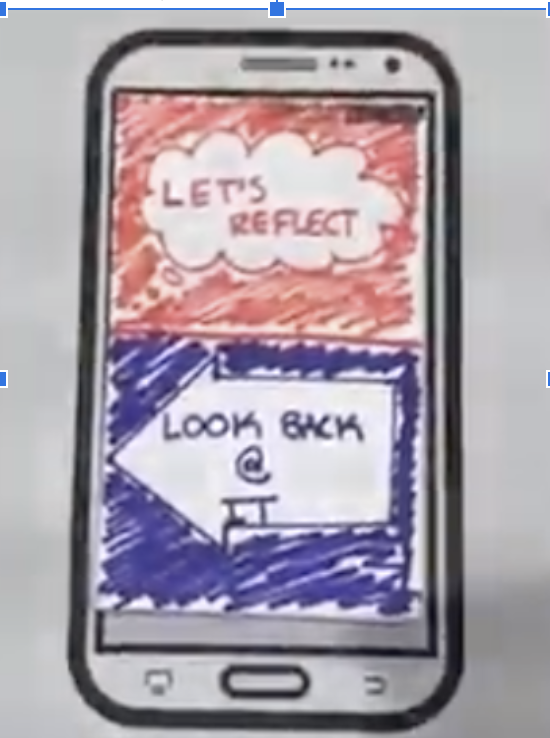 LET'S
REFLECT
LOOK BACK
@
IT